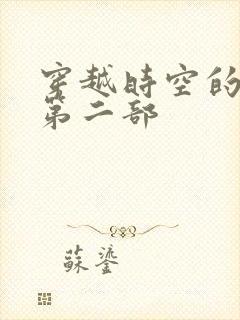 穿越時空的
第二部
蘇鎏